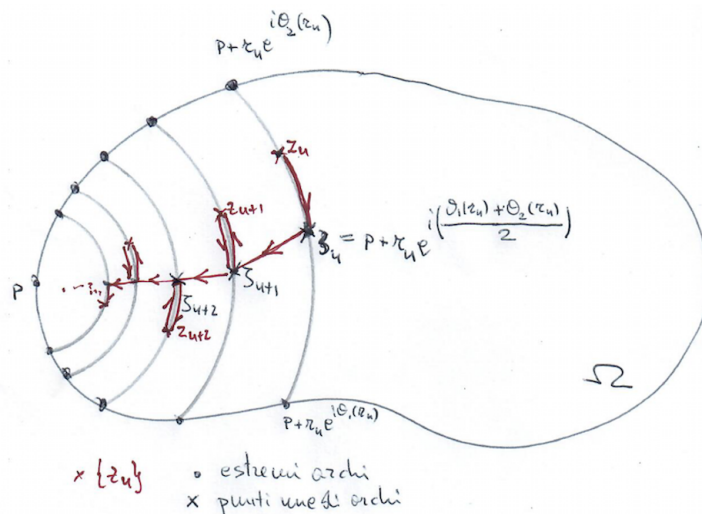 p+r_n e^{iθ_2(r_n)}
z_n
z_{n+1}
ζ_n = p+r_n e^{i(ϑ_1(r_n)+iθ_2(r_n)/2)}
p
ζ_{n+1}
ζ_{n+2}
z_{n+2}
Ω
p+r_n e^{iθ_1(r_n)}
× {z_n}
• estremi archi
× punti medi archi